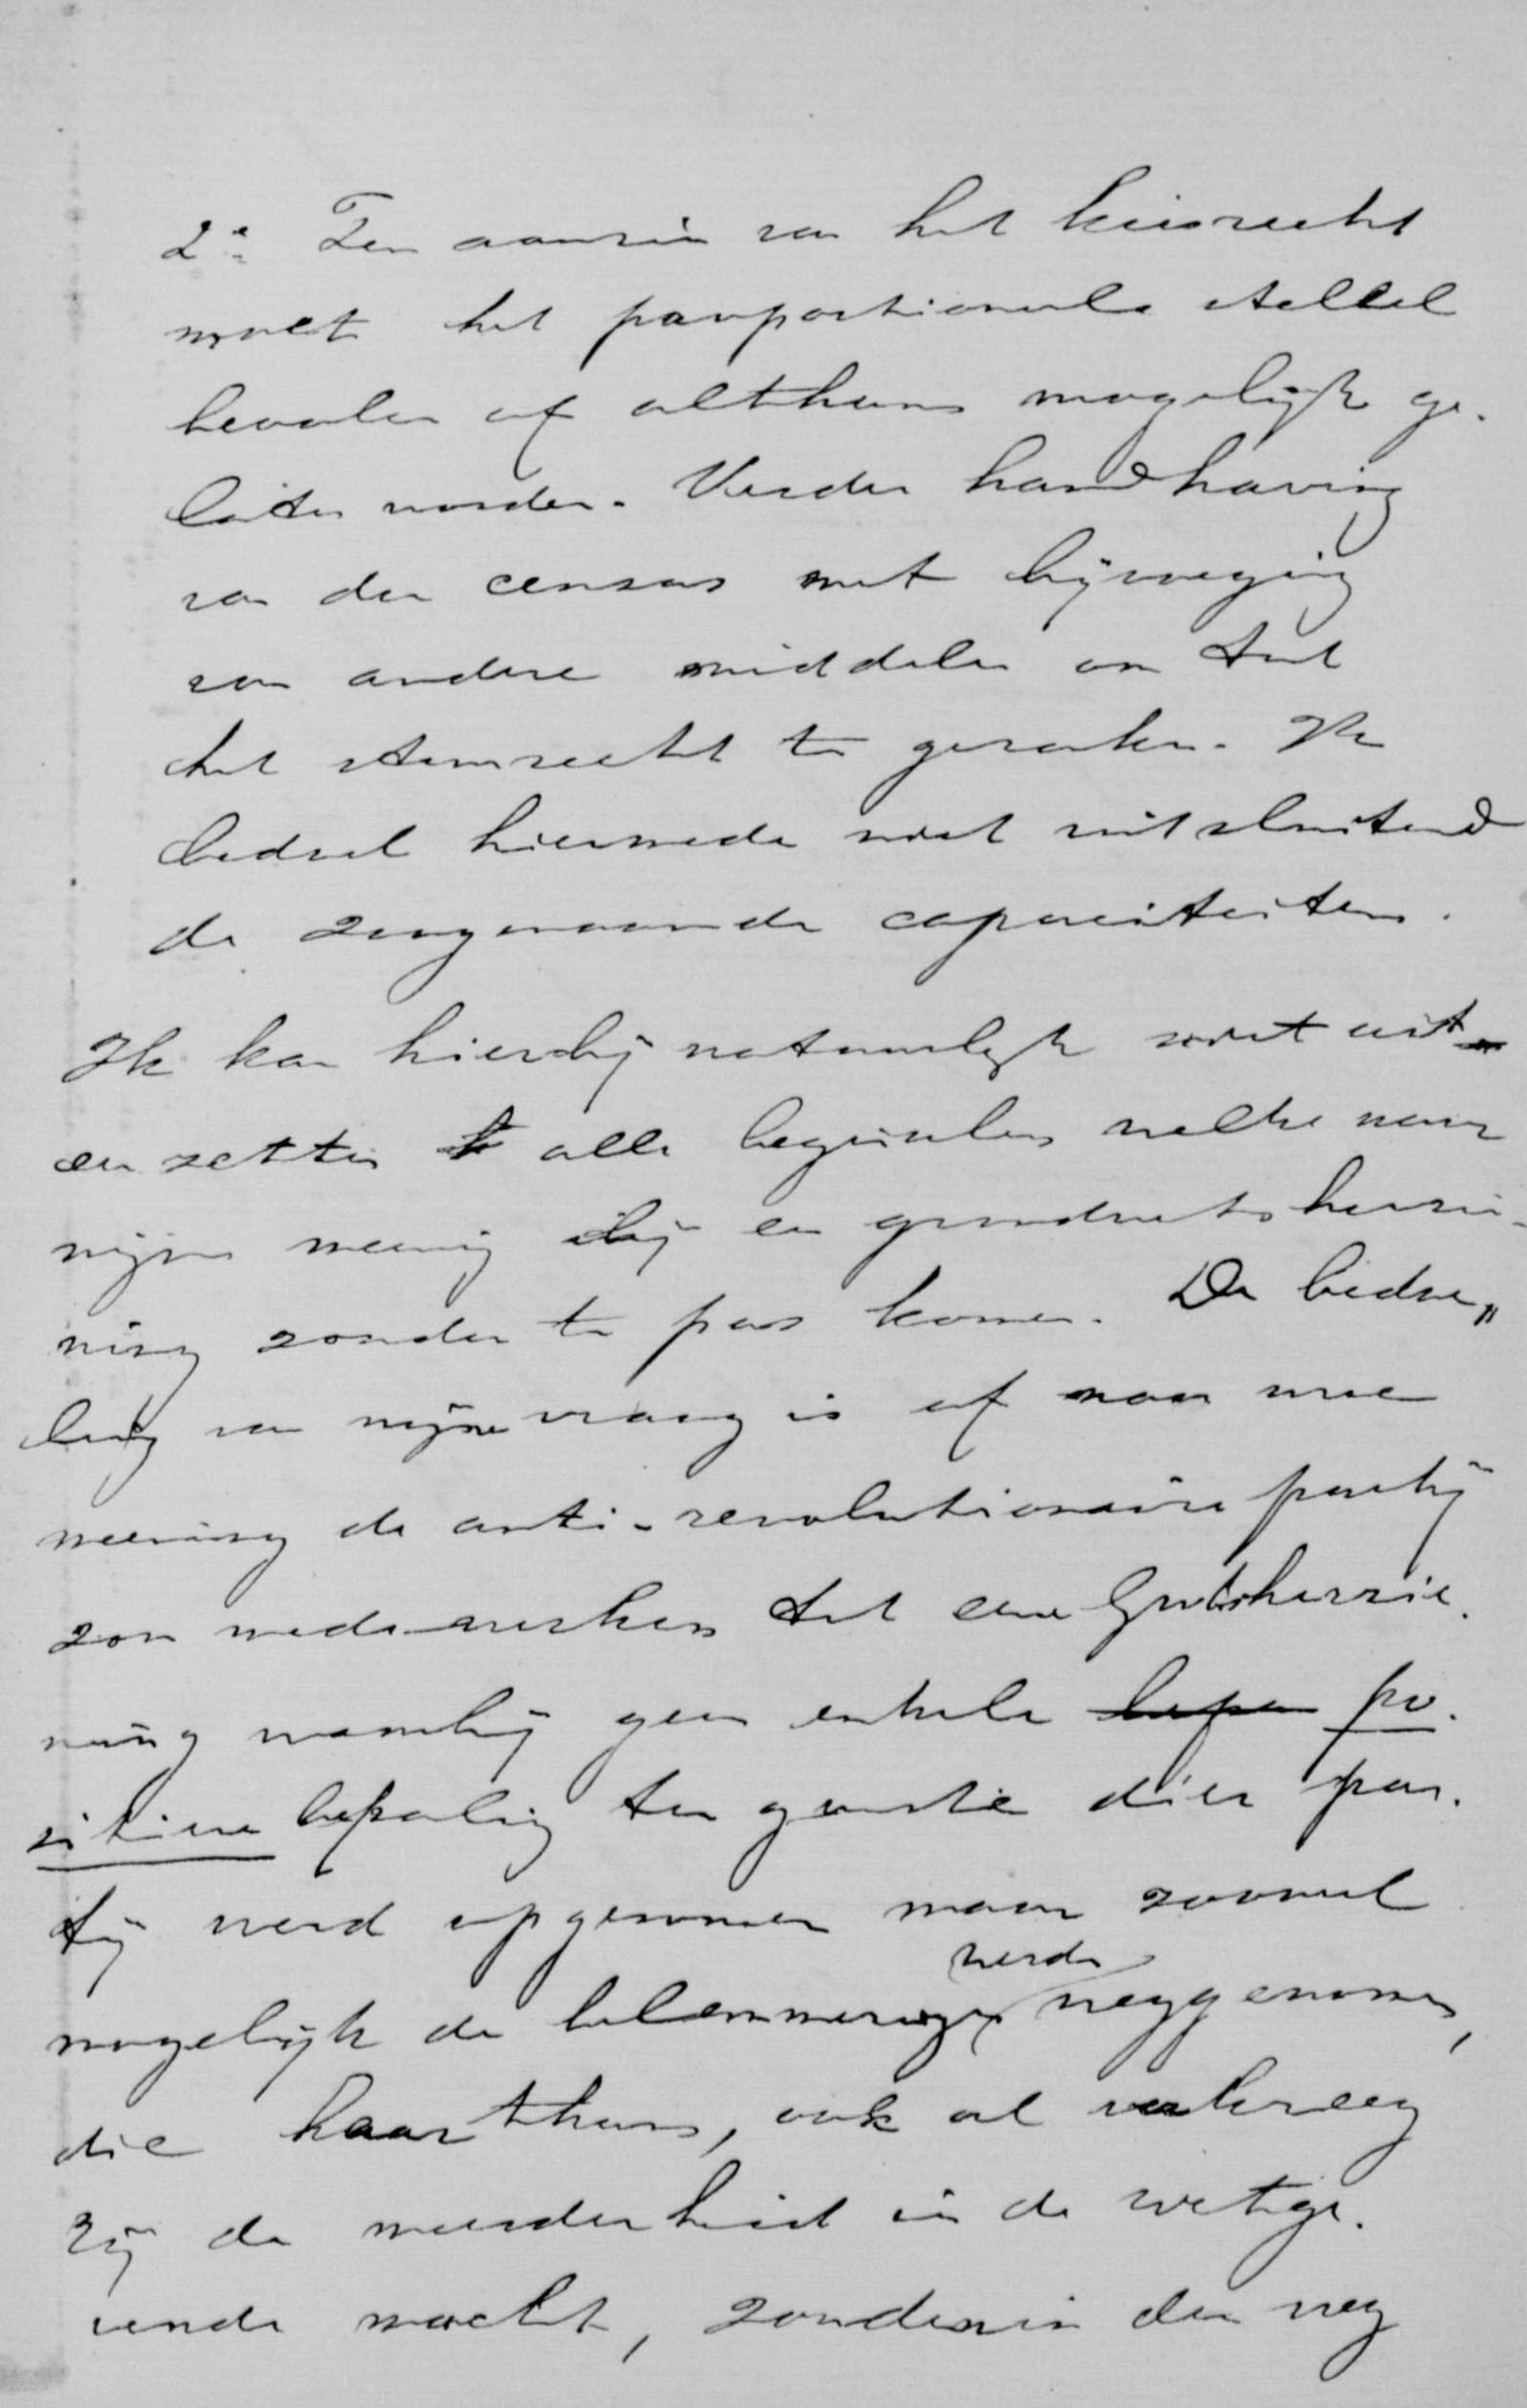 2º Ten aanzien van het kiesrecht
moet het proportioneele stelsel
bevolen of althans mogelijk ge-
laten worden. Verder handhaving
van den census met bijvoeging
van andere middelen om tot
het stemrecht te geraken. Ik
bedoel hiermede niet uitsluitend
de zoogenaamde capaciteiten.
Ik kan hierbij natuurlijk niet uit
een zetten alle beginselen welke naar
mijne meening bij een grondwetsherzie-
ning zouden te pas komen. De bedoe„
ling van mijne vraag is of naar uwe
meening de anti-revolutionaire partij
zou medewerken tot eene Grwtsherzie.
ning waarbij geen enkele bepa po.
sitieve bepaling ten gunste dier par.
tij werd opgenomen maar zooveel
mogelijk de belemmeringen werden weggenomen,
die haar thans, ook al verkreeg
zij de meerderheid in de wetge.
vende macht, zouden in den weg